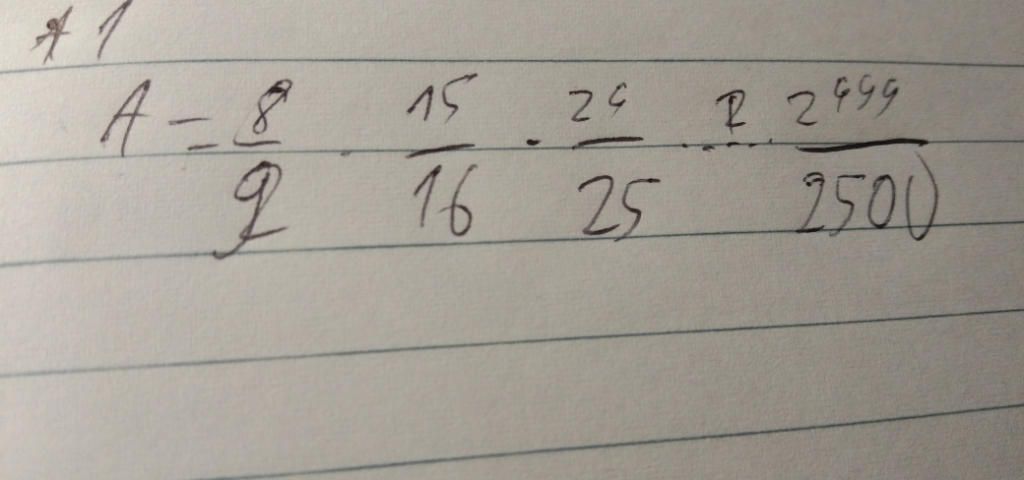 * 1
A = 8/9 · 15/16 · 24/25 ..... 2499/2500